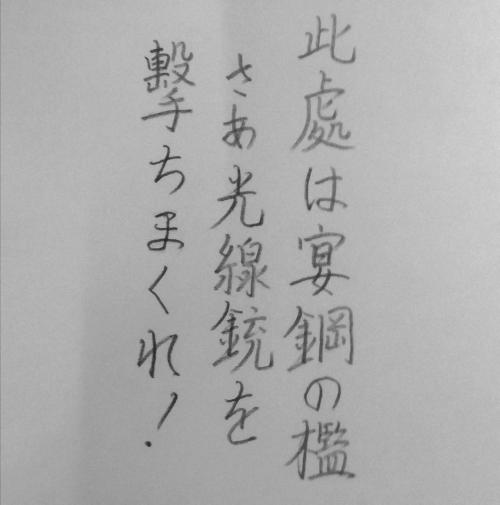 此處は宴鋼の檻
さあ光線銃を
撃ちまくれ！